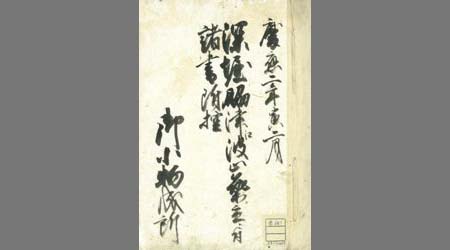 慶應二年寅二月
深堀脇津江波止築立ニ付
諸書附控
御小物成所